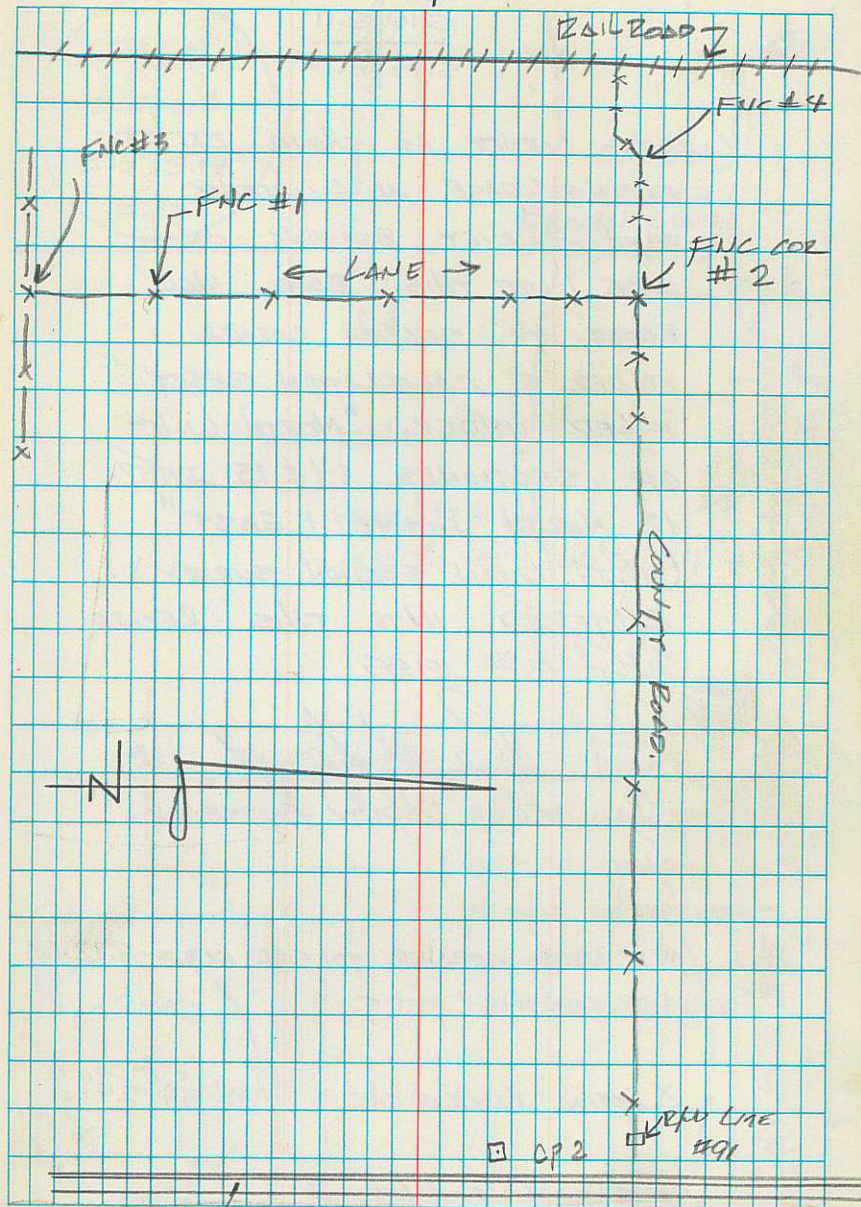 RAILROAD
FNC #4
FNC #3
FNC #1
← LANE →
FNC COR
# 2
COUNTY ROAD.
N
R/W LINE
#91
CP 2